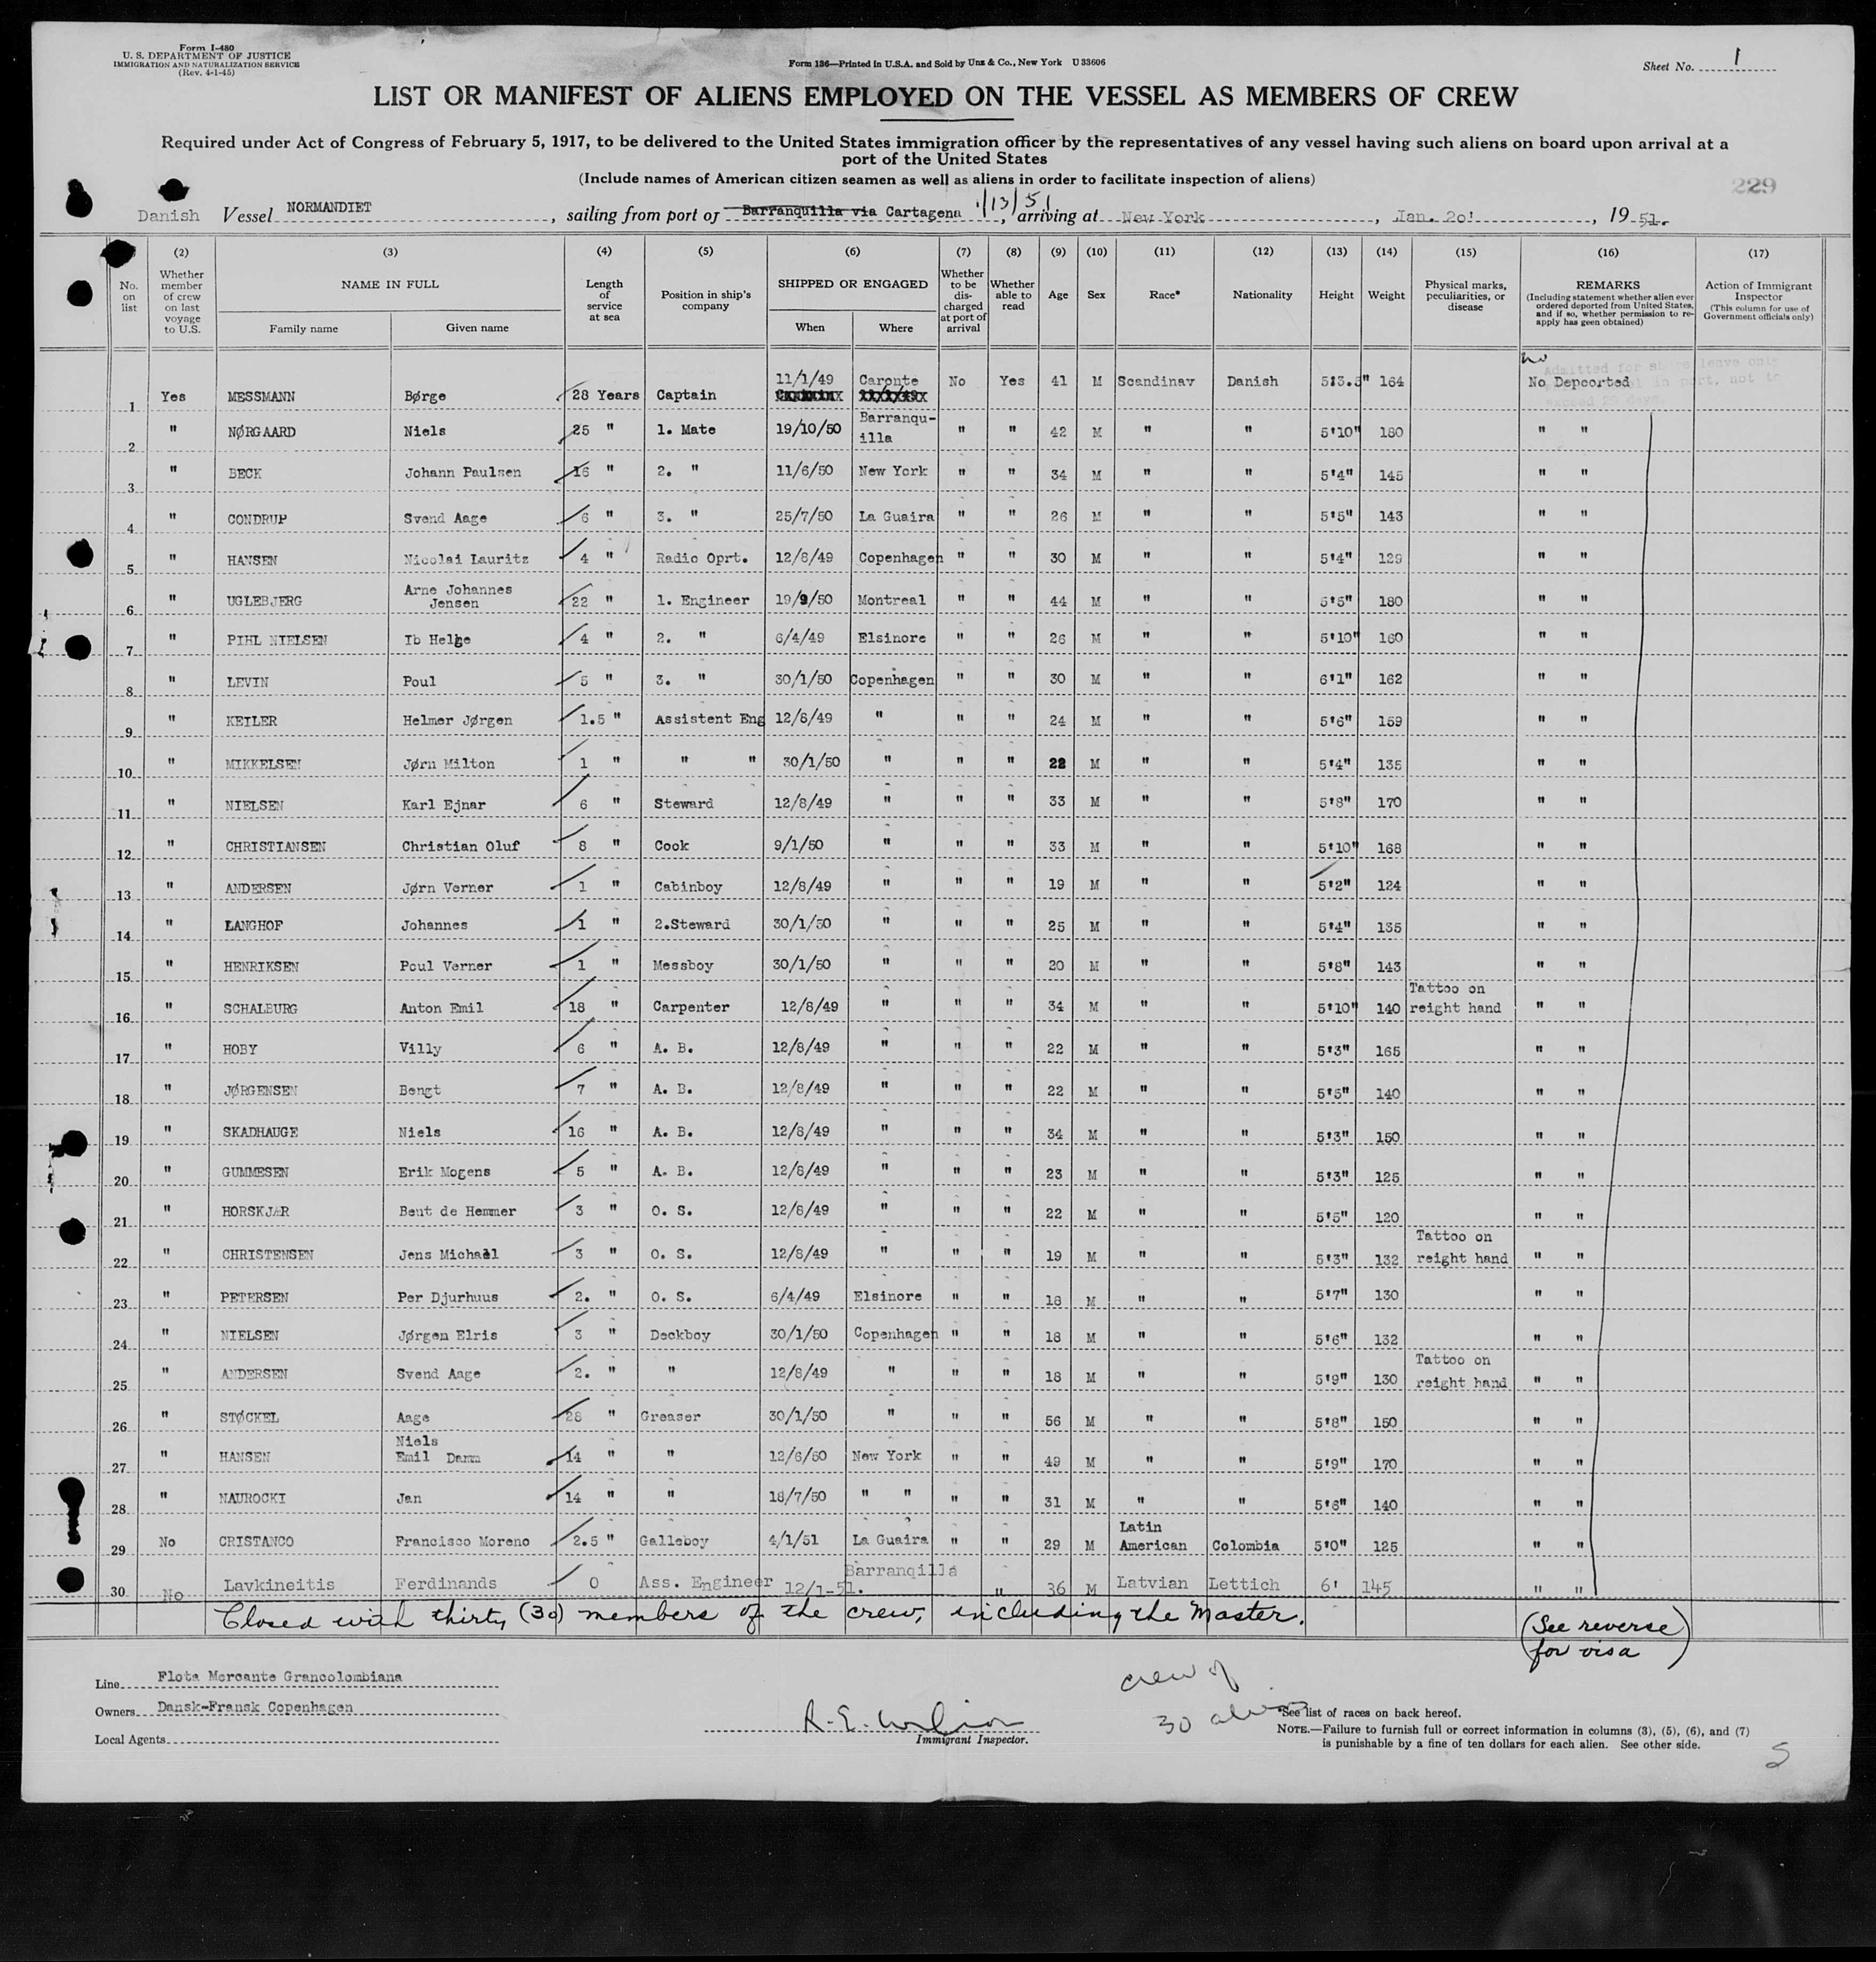 Form I-480
U. S. DEPARTMENT OF JUSTICE
IMMIGRATION AND NATURALIZATION SERVICE
(Rev. 4-1-45)
Form 136—Printed in U.S.A. and Sold by Unz & Co., New York U 33606
Sheet No. 1
LIST OR MANIFEST OF ALIENS EMPLOYED ON THE VESSEL AS MEMBERS OF CREW
Required under Act of Congress of February 5, 1917, to be delivered to the United States immigration officer by the representatives of any vessel having such aliens on board upon arrival at a
port of the United States
(Include names of American citizen seamen as well as aliens in order to facilitate inspection of aliens)
229
Danish Vessel NORMANDIET, sailing from port of Barranquilla via Cartagena 1/13/51, arriving at New York, Jan. 20', 1951.
(2) (3) (4) (5) (6) (7) (8) (9) (10) (11) (12) (13) (14) (15) (16) (17)
No. on list Whether member of crew on last voyage to U.S. NAME IN FULL Family name Given name Length of service at sea Position in ship's company SHIPPED OR ENGAGED When Where Whether to be discharged at port of arrival Whether able to read Age Sex Race* Nationality Height Weight Physical marks, peculiarities, or disease REMARKS (Including statement whether alien ever ordered deported from United States, and if so, whether permission to re-apply has geen obtained) Action of Immigrant Inspector (This column for use of Government officials only)
no
Admitted for shore leave only
1 Yes MESSMANN Børge 28 Years Captain 11/1/49 Caronte No Yes 41 M Scandinav Danish 5'3.5" 164 No Depcorted
2 " NØRGAARD Niels 25 " 1. Mate 19/10/50 Barranqu-illa " " 42 M " " 5'10" 180 " "
3 " BECK Johann Paulsen 16 " 2. " 11/6/50 New York " " 34 M " " 5'4" 145 " "
4 " CONDRUP Svend Aage 6 " 3. " 25/7/50 La Guaira " " 26 M " " 5'5" 143 " "
5 " HANSEN Nicolai Lauritz 4 " Radio Oprt. 12/8/49 Copenhagen " " 30 M " " 5'4" 129 " "
6 " UGLEBJERG Arne Johannes Jensen 22 " 1. Engineer 19/9/50 Montreal " " 44 M " " 5'5" 180 " "
7 " PIHL NIELSEN Ib Helge 4 " 2. " 6/4/49 Elsinore " " 26 M " " 5'10" 160 " "
8 " LEVIN Poul 5 " 3. " 30/1/50 Copenhagen " " 30 M " " 6'1" 162 " "
9 " KEILER Helmer Jørgen 1.5 " Assistent Eng 12/8/49 " " " 24 M " " 5'6" 159 " "
10 " MIKKELSEN Jørn Milton 1 " " " 30/1/50 " " " 22 M " " 5'4" 135 " "
11 " NIELSEN Karl Ejnar 6 " Steward 12/8/49 " " " 33 M " " 5'8" 170 " "
12 " CHRISTIANSEN Christian Oluf 8 " Cook 9/1/50 " " " 33 M " " 5'10" 168 " "
13 " ANDERSEN Jørn Verner 1 " Cabinboy 12/8/49 " " " 19 M " " 5'2" 124 " "
14 " LANGHOF Johannes 1 " 2.Steward 30/1/50 " " " 25 M " " 5'4" 135 " "
15 " HENRIKSEN Poul Verner 1 " Messboy 30/1/50 " " " 20 M " " 5'8" 143 " "
16 " SCHALBURG Anton Emil 18 " Carpenter 12/8/49 " " " 34 M " " 5'10" 140 Tattoo on reight hand " "
17 " HOBY Villy 6 " A. B. 12/8/49 " " " 22 M " " 5'3" 165 " "
18 " JØRGENSEN Bengt 7 " A. B. 12/8/49 " " " 22 M " " 5'5" 140 " "
19 " SKADHAUGE Niels 16 " A. B. 12/8/49 " " " 34 M " " 5'3" 150 " "
20 " GUMMESEN Erik Mogens 5 " A. B. 12/8/49 " " " 23 M " " 5'3" 125 " "
21 " HORSKJÆR Beut de Hemmer 3 " O. S. 12/8/49 " " " 22 M " " 5'5" 120 " "
22 " CHRISTENSEN Jens Michael 3 " O. S. 12/8/49 " " " 19 M " " 5'3" 132 Tattoo on reight hand " "
23 " PETERSEN Per Djurhuus 2. " O. S. 6/4/49 Elsinore " " 18 M " " 5'7" 130 " "
24 " NIELSEN Jørgen Elris 3 " Deckboy 30/1/50 Copenhagen " " 18 M " " 5'6" 132 " "
25 " ANDERSEN Svend Aage 2. " " 12/8/49 " " " 18 M " " 5'9" 130 Tattoo on reight hand " "
26 " STØCKEL Aage 28 " Greaser 30/1/50 " " " 56 M " " 5'8" 150 " "
27 " HANSEN Niels Emil Damm 14 " " 12/6/50 New York " " 49 M " " 5'9" 170 " "
28 " NAUROCKI Jan 14 " " 18/7/50 " " " " 31 M " " 5'6" 140 " "
29 No CRISTANCO Francisco Moreno 2.5 " Galleboy 4/1/51 La Guaira " " 29 M Latin American Colombia 5'0" 125 " "
30 No Lavkineitis Ferdinands 0 Ass. Engineer 12/1-51. Barranqilla " 36 M Latvian Lettich 6' 145 " "
Closed with thirty (30) members of the crew, including the Master.
(See reverse for visa)
Line Flota Mercante Grancolombiana
Owners Dansk-Fransk Copenhagen
Local Agents
Immigrant Inspector.
crew of
30 aliens
*See list of races on back hereof.
NOTE.—Failure to furnish full or correct information in columns (3), (5), (6), and (7)
is punishable by a fine of ten dollars for each alien. See other side.